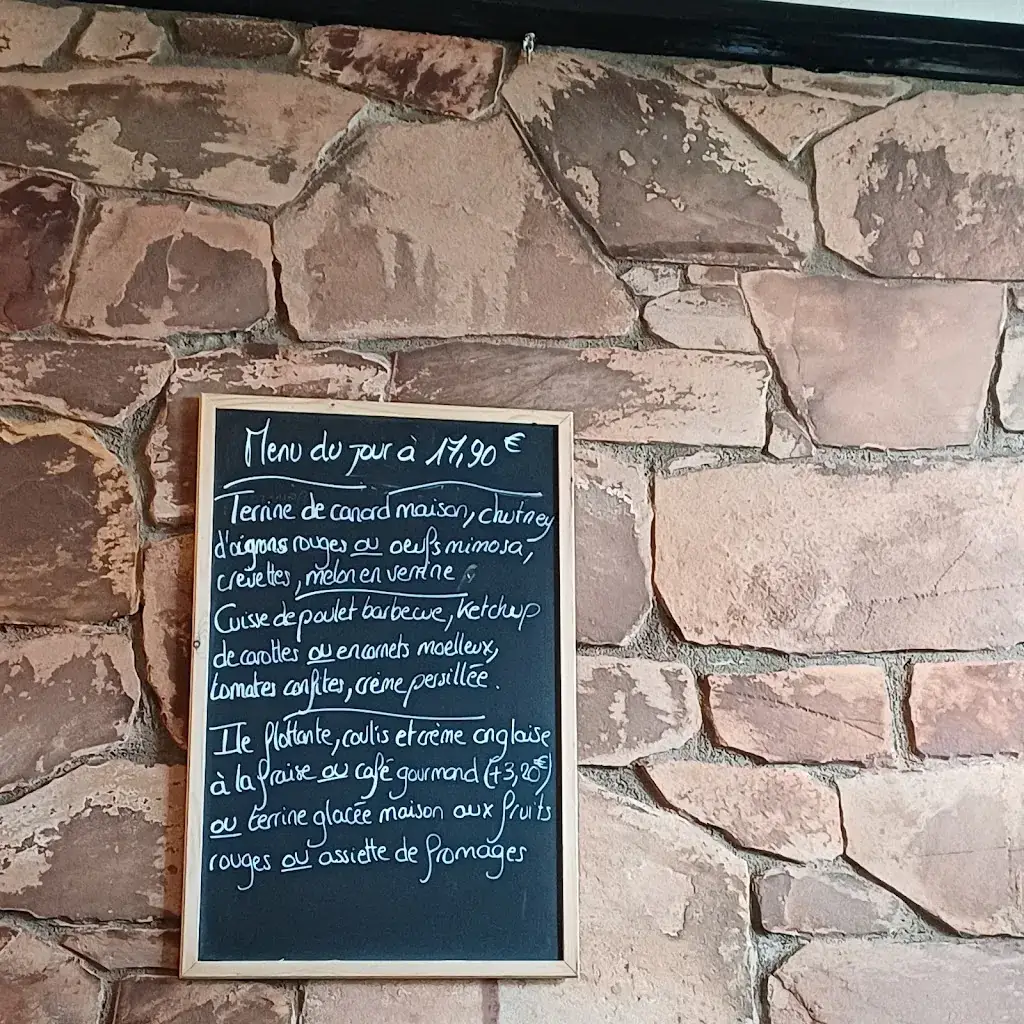 Menu du jour à 17,90 €
Terrine de canard maison, chutney
d'oignons rouges ou oeufs mimosa,
crevettes, melon en verrine
Cuisse de poulet barbecue, Ketchup
de carottes ou encornets moelleux,
tomates confites, crème persillée.
Ile flottante, coulis et crème anglaise
à la fraise ou café gourmand (+3,20€)
ou terrine glacée maison aux fruits
rouges ou assiette de fromages